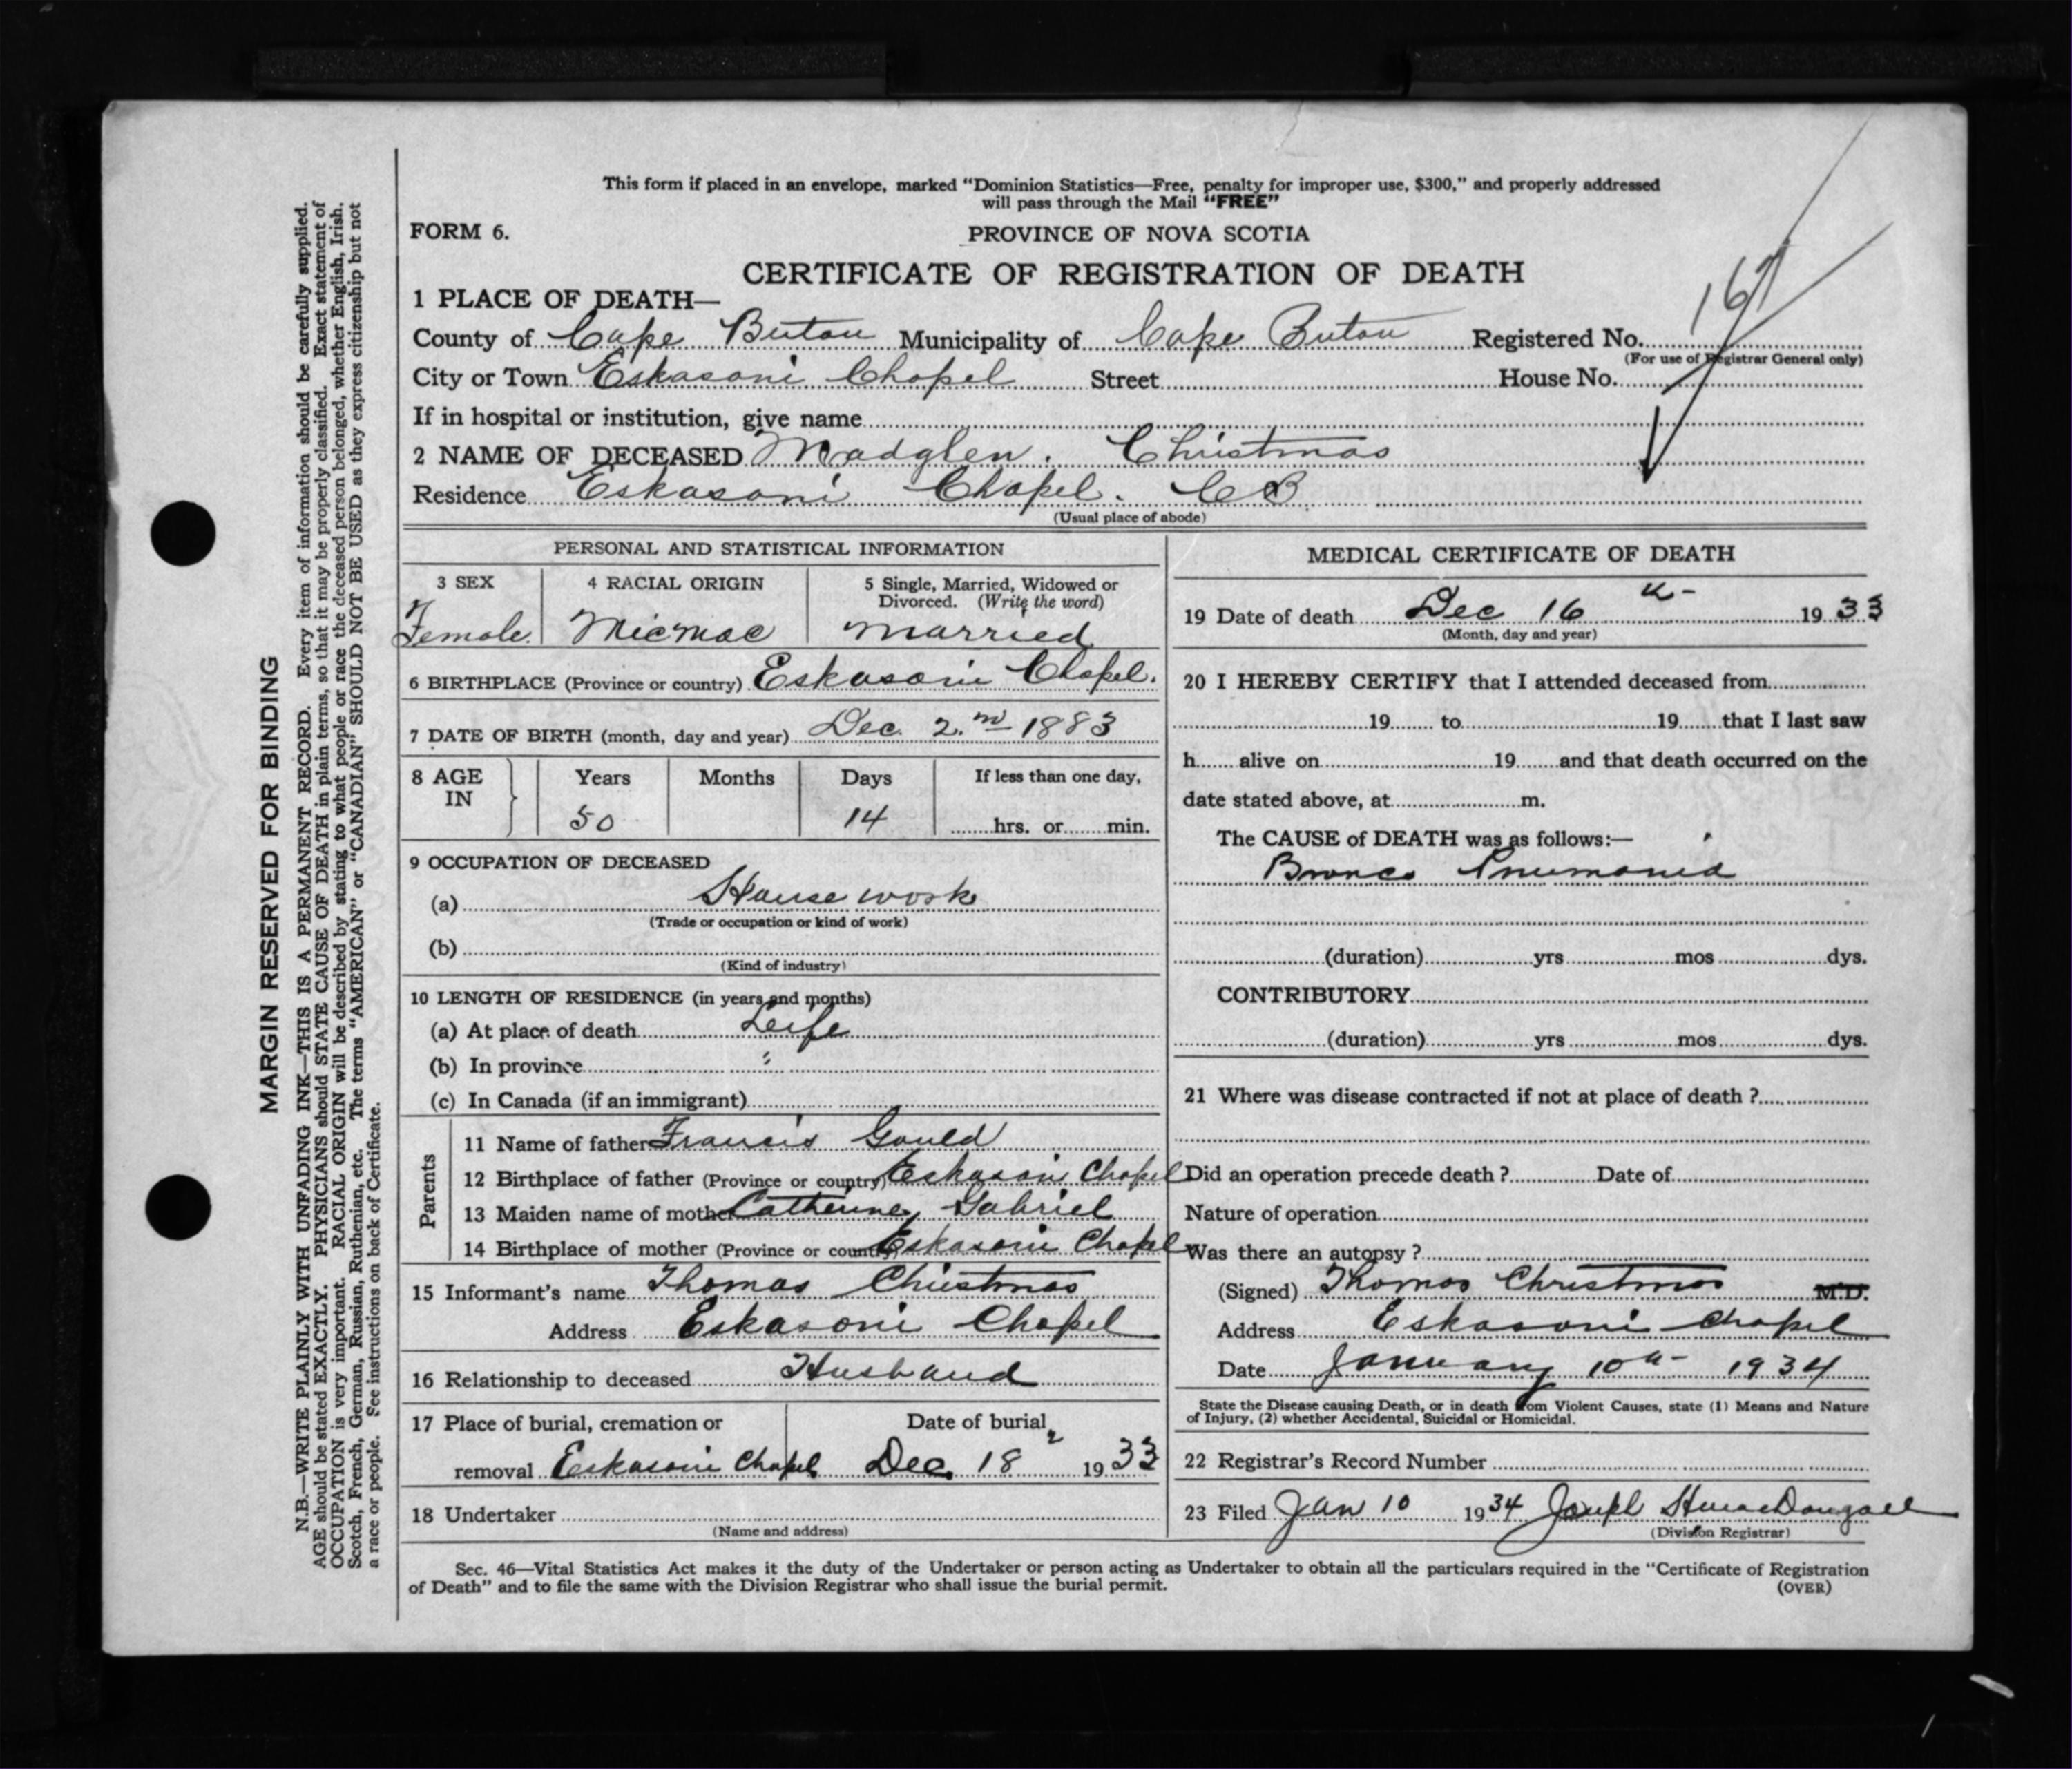 This form if placed in an envelope, marked “Dominion Statistics—Free, penalty for improper use, $300,” and properly addressed
will pass through the Mail “FREE”
FORM 6.
PROVINCE OF NOVA SCOTIA
CERTIFICATE OF REGISTRATION OF DEATH
167
1 PLACE OF DEATH—
County of Cape Breton Municipality of Cape Breton Registered No.
(For use of Registrar General only)
City or Town Eskasoni Chapel Street House No.
If in hospital or institution, give name
2 NAME OF DECEASED Madglen. Christmas
Residence Eskasoni Chapel. CB
(Usual place of abode)
PERSONAL AND STATISTICAL INFORMATION
3 SEX 4 RACIAL ORIGIN 5 Single, Married, Widowed or
Divorced. (Write the word)
Female. Micmac married
6 BIRTHPLACE (Province or country) Eskasoni Chapel.
7 DATE OF BIRTH (month, day and year) Dec. 2.nd 1883
8 AGE Years Months Days If less than one day,
IN
50 14 hrs. or min.
9 OCCUPATION OF DECEASED
(a) House work
(Trade or occupation or kind of work)
(b)
(Kind of industry)
10 LENGTH OF RESIDENCE (in years and months)
(a) At place of death Leife
(b) In province "
(c) In Canada (if an immigrant)
Parents
11 Name of father Francis Gould
12 Birthplace of father (Province or country) Eskasoni Chapel
13 Maiden name of mother Catherine, Gabriel
14 Birthplace of mother (Province or country) Eskasoni Chapel
15 Informant’s name Thomas Christmas
Address Eskasoni Chapel
16 Relationship to deceased Husband
17 Place of burial, cremation or Date of burial
removal Eskasoni Chapel Dec. 18 1933
18 Undertaker
(Name and address)
MEDICAL CERTIFICATE OF DEATH
19 Date of death Dec 16 th 1933
(Month, day and year)
20 I HEREBY CERTIFY that I attended deceased from
19 to 19 that I last saw
h alive on 19 and that death occurred on the
date stated above, at m.
The CAUSE of DEATH was as follows:—
Bronco Pneumonia
(duration) yrs mos dys.
CONTRIBUTORY
(duration) yrs mos dys.
21 Where was disease contracted if not at place of death ?
Did an operation precede death ? Date of
Nature of operation
Was there an autopsy ?
(Signed) Thomas Christmas M.D.
Address Eskasoni Chapel
Date January 10th 1934
State the Disease causing Death, or in death from Violent Causes, state (1) Means and Nature
of Injury, (2) whether Accidental, Suicidal or Homicidal.
22 Registrar’s Record Number
23 Filed Jan 10 1934 Joseph MacDougall
(Division Registrar)
Sec. 46—Vital Statistics Act makes it the duty of the Undertaker or person acting as Undertaker to obtain all the particulars required in the “Certificate of Registration
of Death” and to file the same with the Division Registrar who shall issue the burial permit.
(OVER)
MARGIN RESERVED FOR BINDING
N.B.—WRITE PLAINLY WITH UNFADING INK—THIS IS A PERMANENT RECORD. Every item of information should be carefully supplied.
AGE should be stated EXACTLY. PHYSICIANS should STATE CAUSE OF DEATH in plain terms, so that it may be properly classified. Exact statement of
OCCUPATION is very important. RACIAL ORIGIN will be described by stating to what people or race the deceased person belonged, whether English, Irish,
Scotch, French, German, Russian, Ruthenian, etc. The terms “AMERICAN” or “CANADIAN” SHOULD NOT BE USED as they express citizenship but not
a race or people. See instructions on back of Certificate.